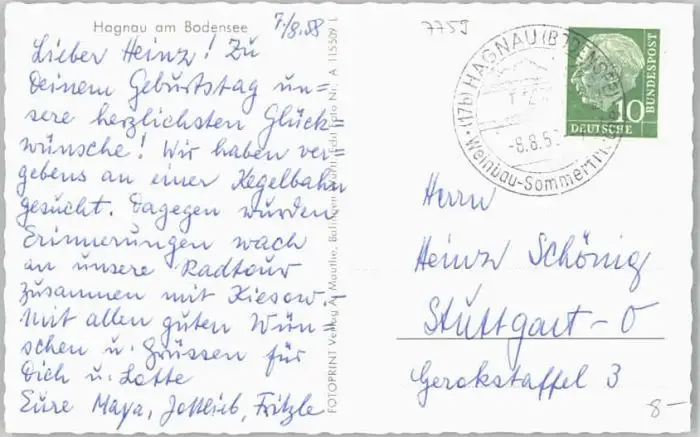 Hagnau am Bodensee
7/8.58
Lieber Heinz! Zu
Deinem Geburtstag un=
sere herzlichsten Glück
wünsche! Wir haben ver
gebens an einer Kegelbahn
gesucht. Dagegen wurden
Erinnerungen wach
an unsere Radtour
zusammen mit Kiesow.
Mit allen guten Wün-
schen u. Grüssen für
Dich u. Lotte
Eure Maya, Gottlieb, Fritzle
FOTOPRINT Verlag A. Mauthe, Nr. A 115509 L
7759
(17b) HAGNAU (BODENSEE)
-8.8.5
Weinbau-Sommerfr
10
DEUTSCHE
BUNDESPOST
Herrn
Heinz Schönig
Stuttgart-O
Gerokstaffel 3
8-